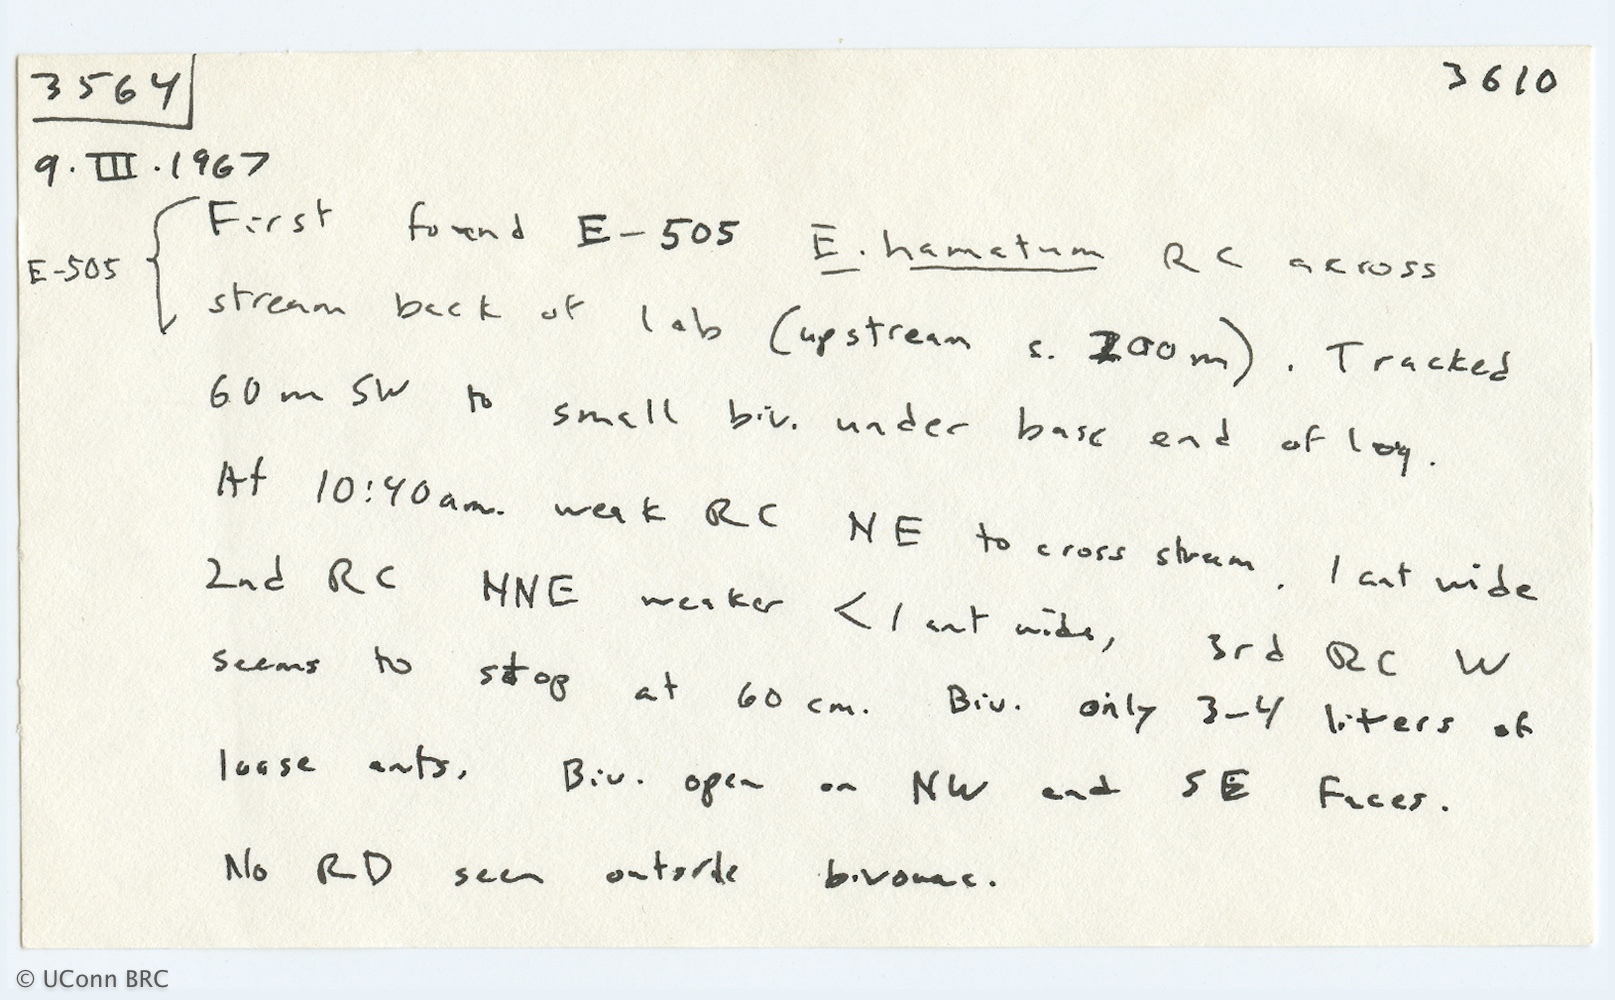 3564
3610
9.III.1967
E-505
First found E-505 E. hamatum RC across
stream back of lab (upstream s. 200m). Tracked
60m SW to small biv. under base end of log.
At 10:40am. weak RC NE to cross stream, 1 ant wide
2nd RC NNE weaker <1 ant wide, 3rd RC W
seems to stop at 60 cm. Biv. only 3-4 liters of
loose ants. Biv. open on NW and SE Faces.
No RD seen outside bivouac.
© UConn BRC